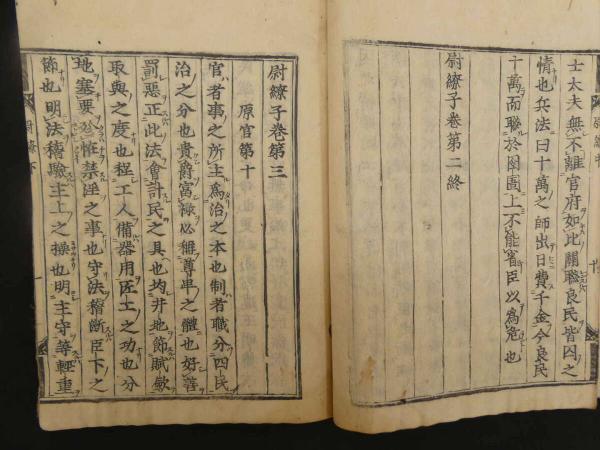 士大夫無不離官府如此關聯良民皆囚之
情也兵法曰十萬之師出日費千金今良民
十萬而聯於囹圄上不能省臣以為危也
尉繚子卷第二終
尉繚子卷第三
原官第十
官者事之所主為治之本也制者職分四民
治之分也貴爵富祿必稱尊卑之體也好善
罰惡正比法會計民之具也均井地節賦歛
取與之度也程工人備器用匠工之功也分
地塞要殄恠禁淫之事也守法稽斷臣下之
節也明法稽驗主上之操也明主守等輕重